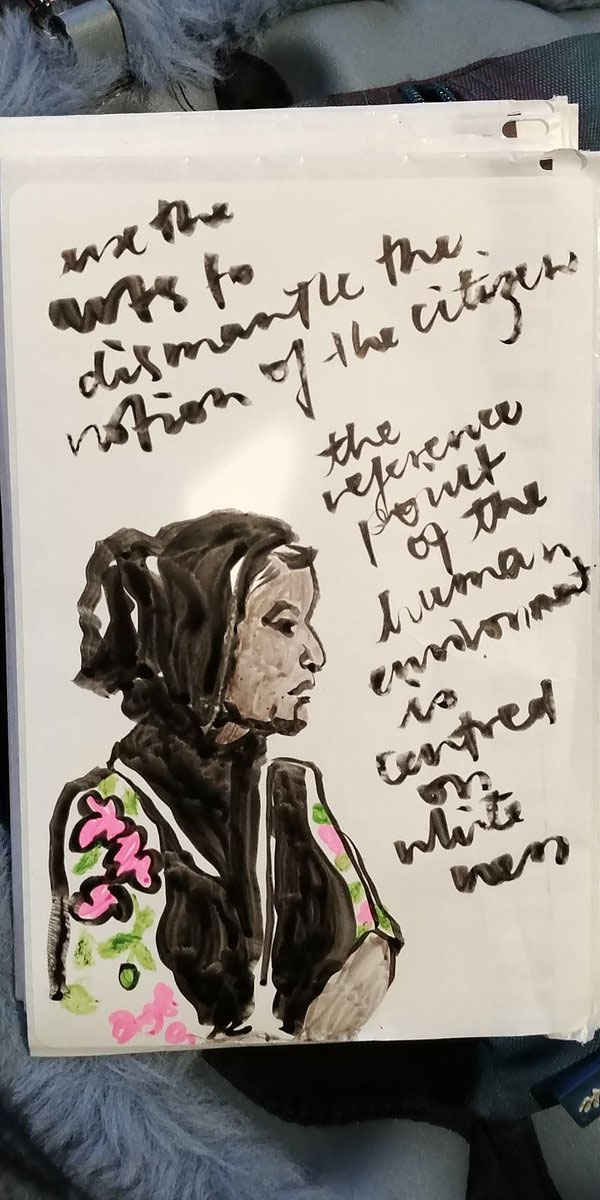 use the
arts to
dismantle the
notion of the citizen
the
reference
point
of the
human
environment
is
centred
on
white
ness